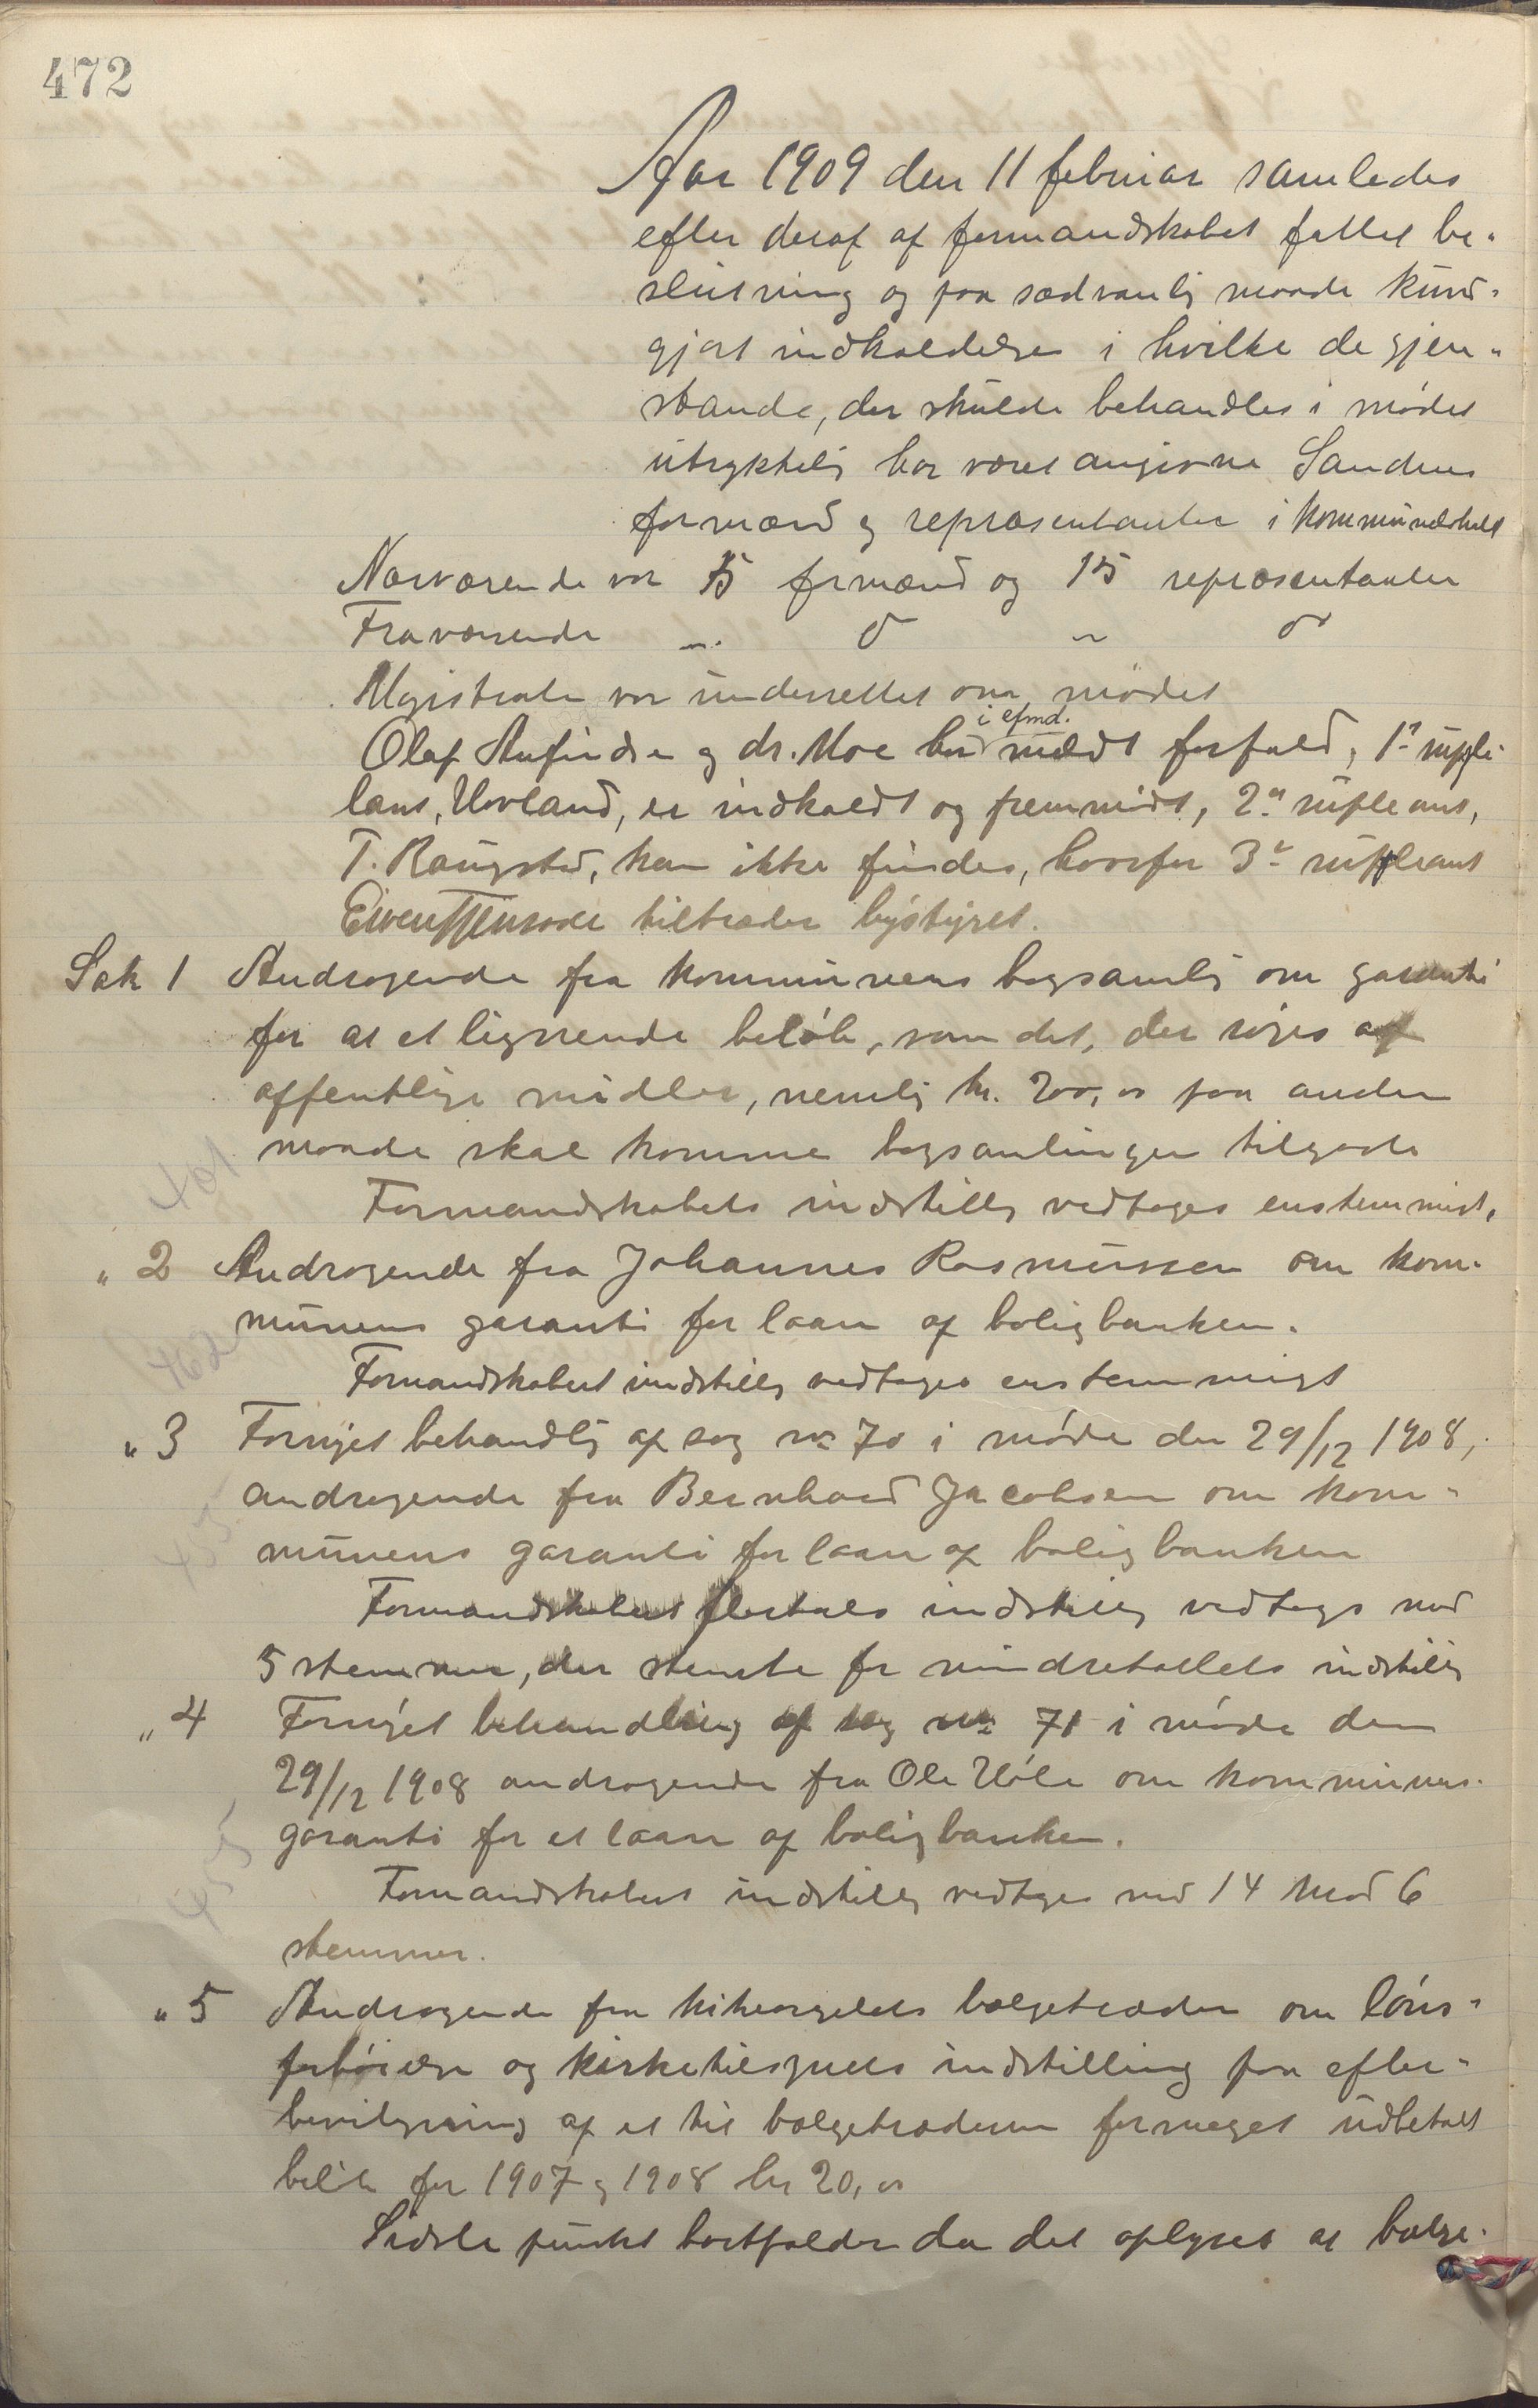 472
Aar 1909 den 11 februar samledes
efter deraf af formandskabet fattet be-
slutning og paa sædvanlig maade kund-
gjort indkaldelse i hvilke de gjen-
stande, der skulde behandles i mødet
utrykkelig har været angivne Sandnes
formænd og repræsentanter i kommunelokalet
Nærværende var 5 formænd og 15 repræsentanter
Fraværende " 0 " 0
Magistraten var underrettet om mødet
i efmd.
Olaf Aufindsen og dr. Moe har meldt forfald, 1ste supple-
lant, Hovland, er indkaldt og fremmødt, 2den supleant,
T. Raugstad, kan ikke findes, hvorfor 3die suppleant
tiltræder bystyret.
Sak 1 Andragende fra kommunens bogsamlig om garanti
for at et lignende beløb, som det, der søges af
offentlige midler, nemlig kr. 200,00 paa anden
maade skal komme bogsamlingen tilgode
461
Formandskabets indstillg vedtoges enstemmigt,
" 2 Andragende fra Johannes Rasmussen om kom-
munens garanti for laan af boligbanken.
462
Formandskabets indstillg vedtoges enstemmigt
" 3 Fornyet behandlg af sag no 70 i møde den 29/12 1908,
andragende fra Bernhard Jacobsen om kom-
455
munens garanti for laan af boligbanken
Formandskabets flertals indstillg vedtoges mod
5 stemmer, der stemte for mindretallets indstillg
" 4 Fornyet behandling af sag no 71 i møde den
29/12 1908 andragende fra Ole Høle om kommunens
garanti for et laan af boligbanken.
455
Formandskabets indstillg vedtoges med 14 mod 6
stemmer.
" 5 Andragende fra kirkeorgelets bælgetræder om løns-
forhøielse og kirketilsynets indstilling paa efter-
bevilgning af et til bælgetræderen formeget udbetalt
beløb for 1907 og 1908 kr 20,00
Sidste punkt bortfalder da det oplyses at bælge-